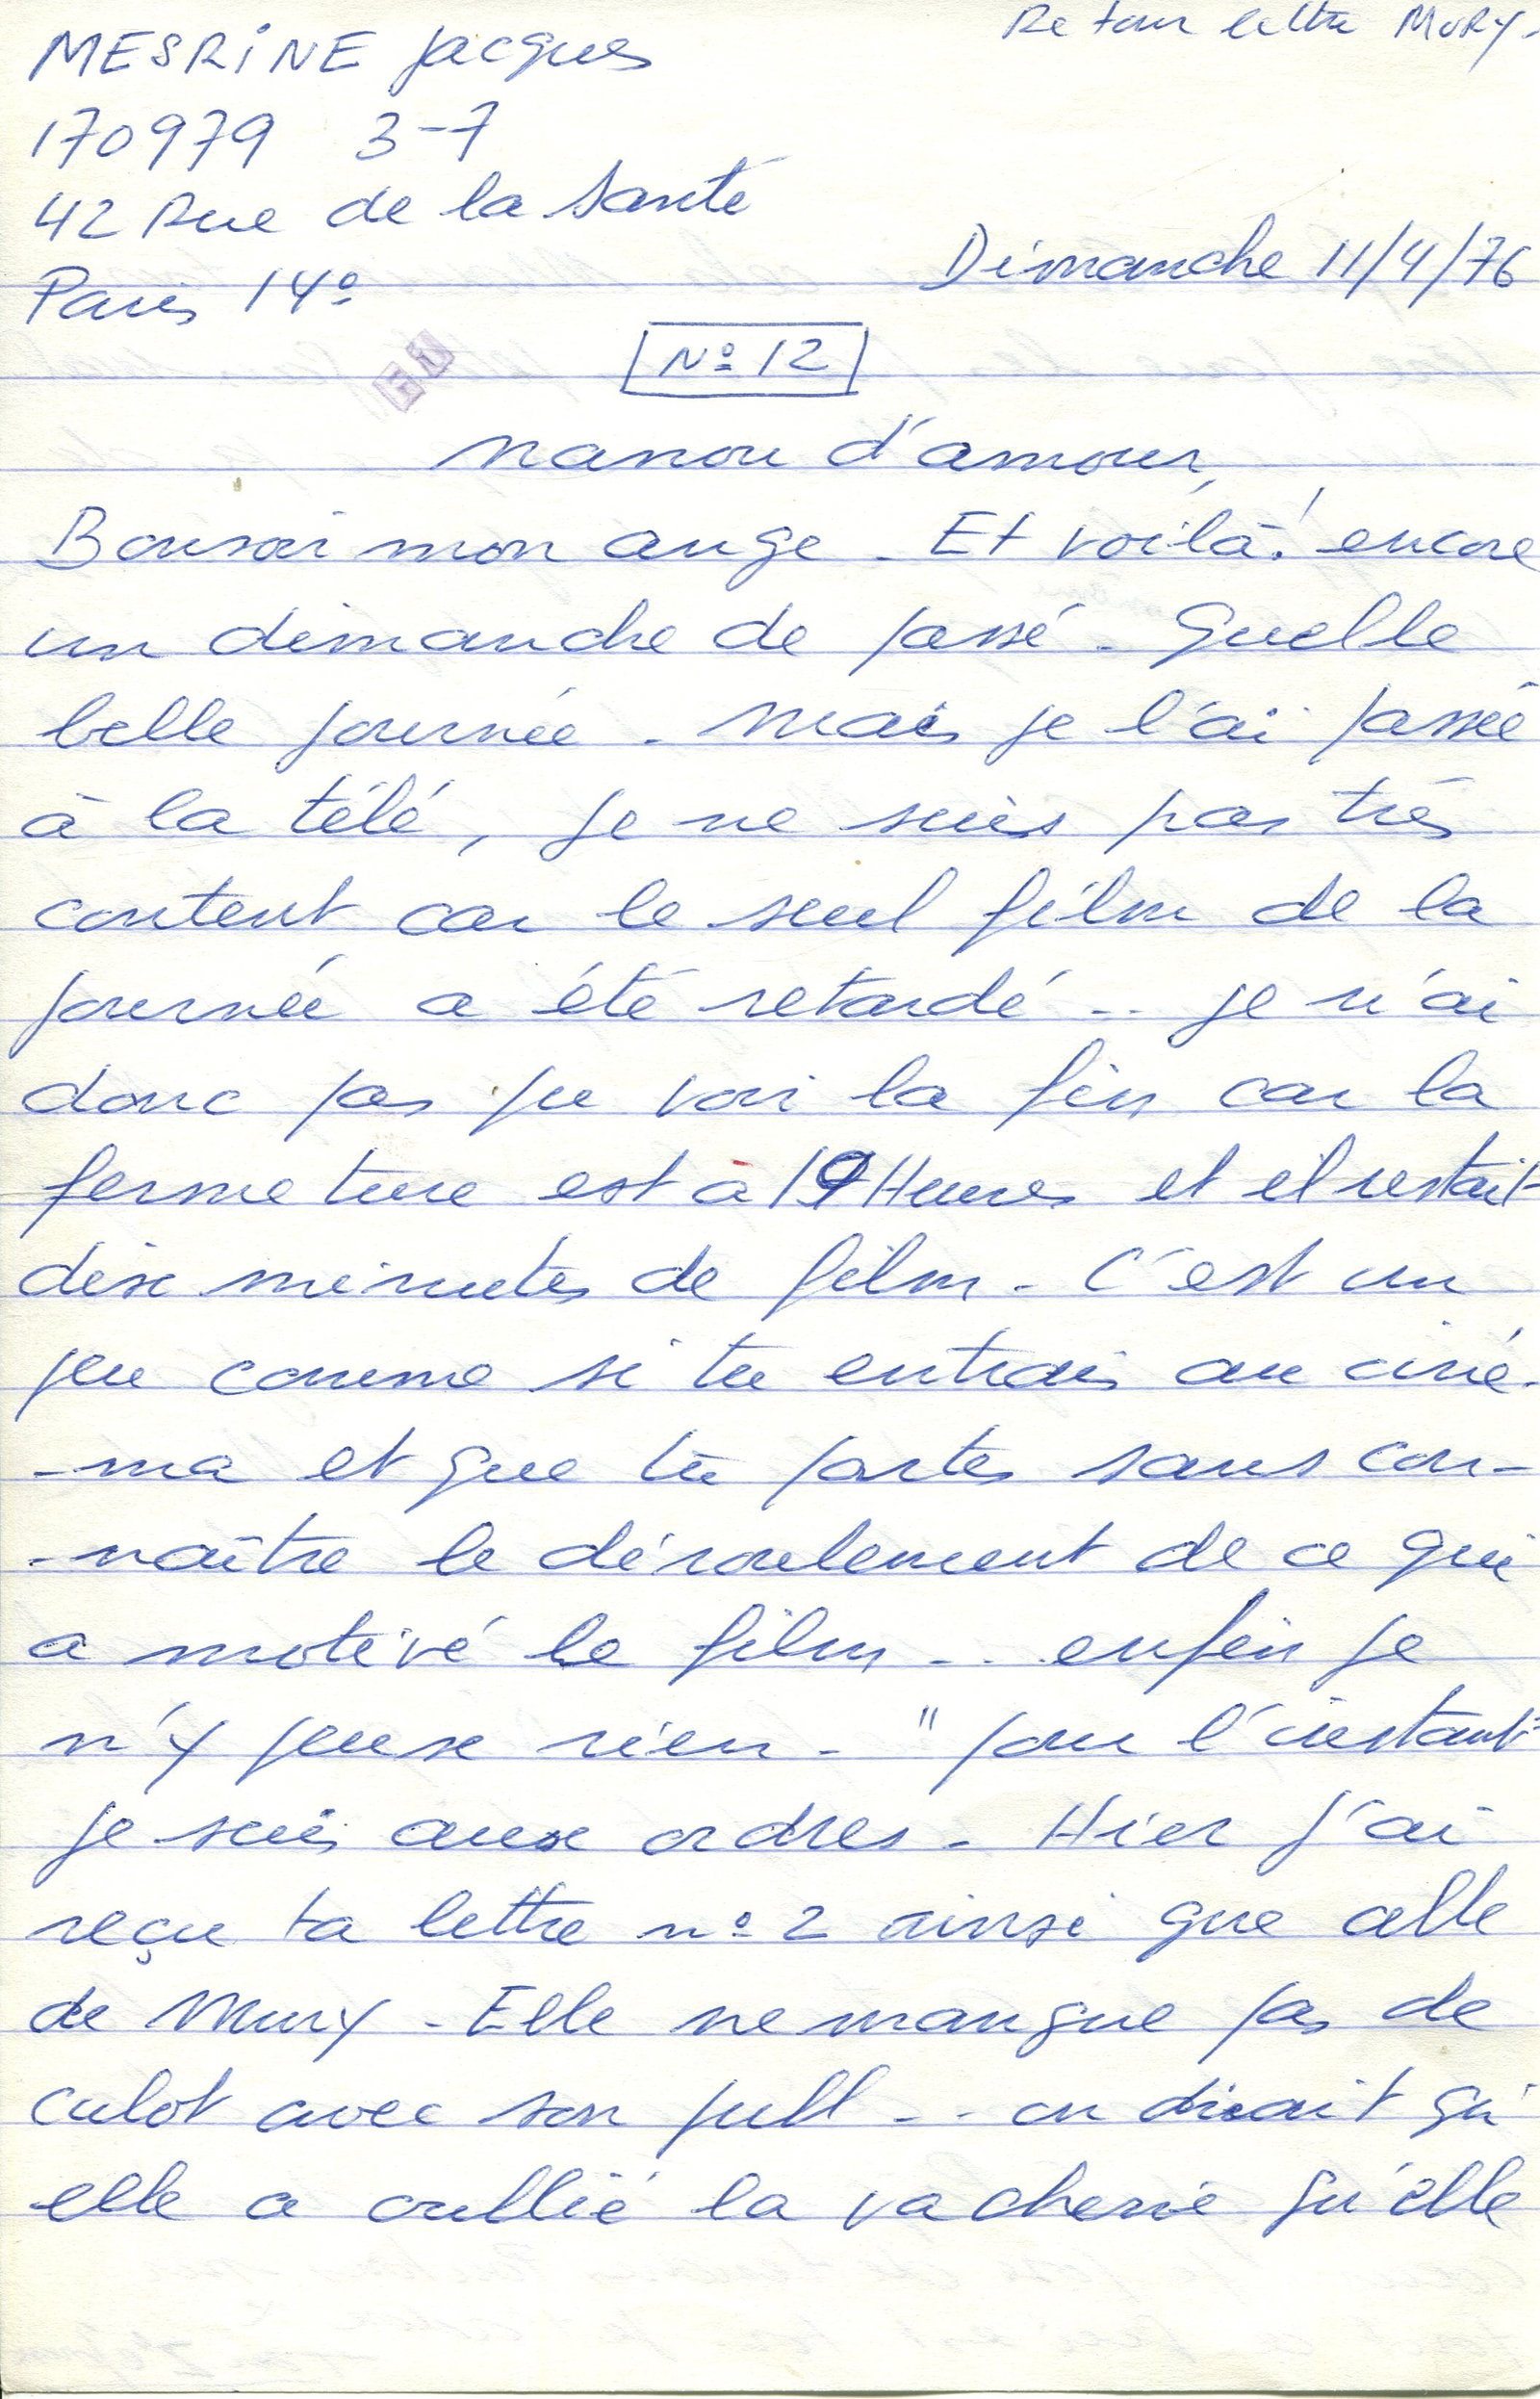 Retour lettre MURY.
MESRINE Jacques
170979 3-7
42 Rue de la Santé
Paris 14º
Dimanche 11/4/76
Nº 12
Nanou d'amour,
Bonsoir mon ange. Et voilà! encore
un dimanche de passé. Quelle
belle journée. Mais je l'ai passée
à la télé, je ne suis pas très
content car le seul film de la
journée a été retardé.. je n'ai
donc pas pu voir la fin car la
fermeture est à 19 Heures et il restait
dix minutes de film. C'est un
peu comme si tu entrais au ciné-
-ma et que tu partes sans con-
-naître le déroulement de ce qui
a motivé le film... enfin je
n'y peux rien. "pour l'instant"
je suis aux ordres. Hier j'ai
reçu ta lettre nº 2 ainsi que celle
de Mury. Elle ne manque pas de
culot avec son pull... on dirait qu'
elle a oublié la vacherie qu'elle